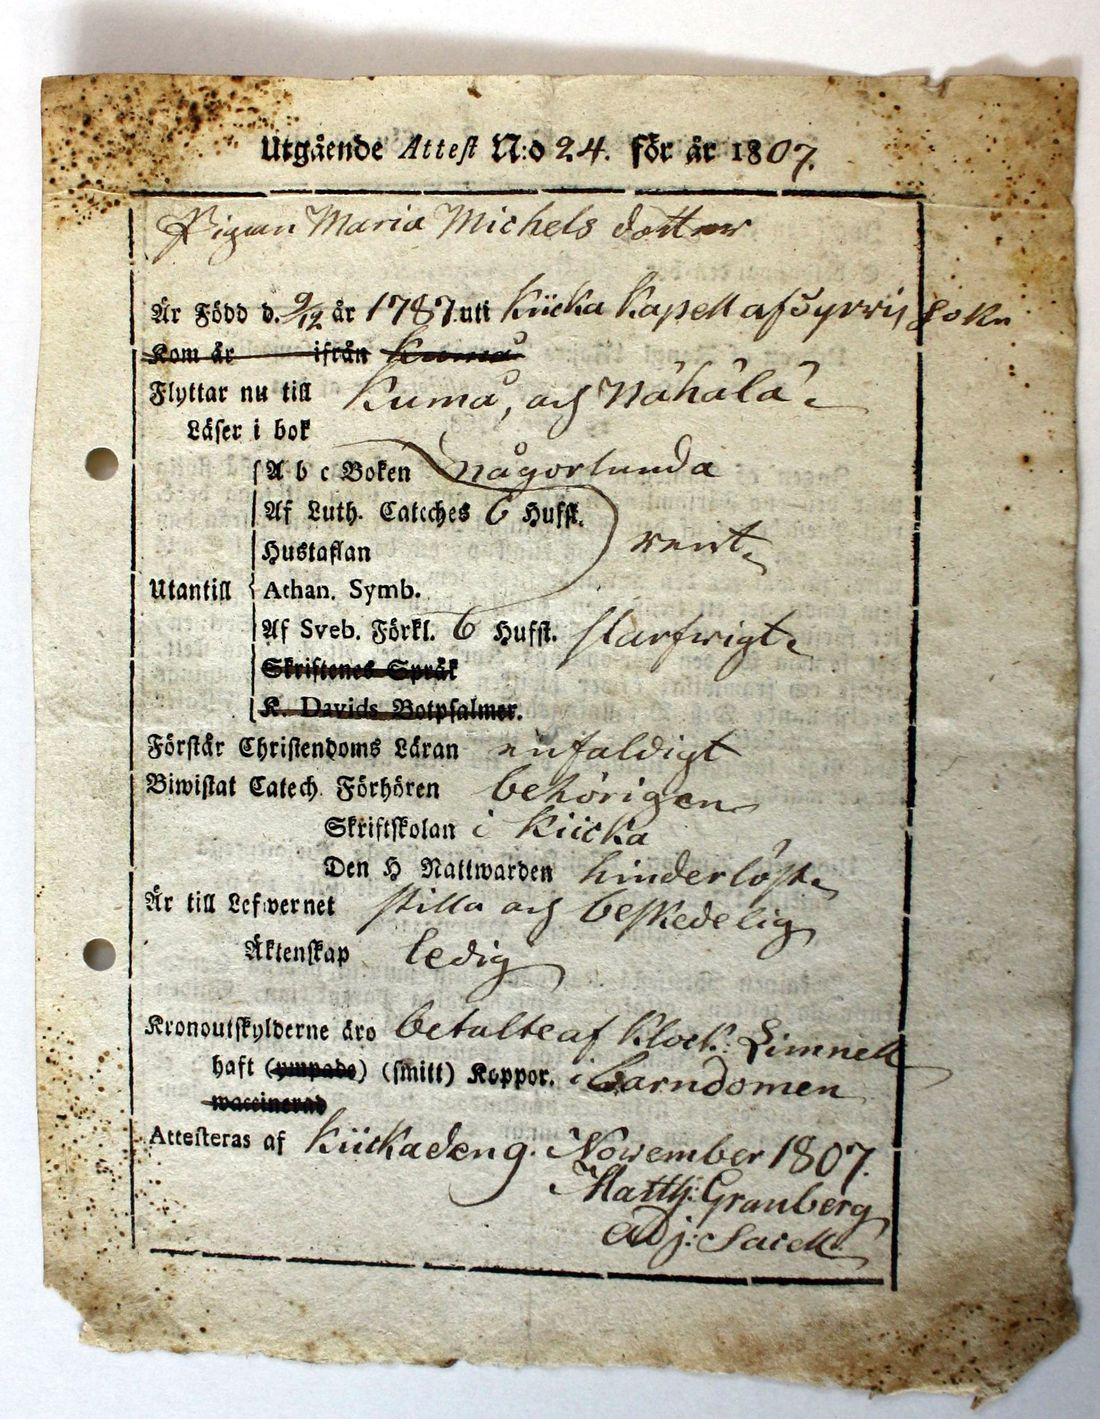 Utgående Attest N:o 24. för år 1807.
Pigan Maria Michels dotter
Är Född d. 9/12 år 1787 uti Kiicka Kapell af Tyrvis Sokn
Kom år ifrån Kumå
Flyttar nu till Kumå, och Nähälä
Läser i bok
A b c Boken någorlunda
Af Luth. Cateches 6 Hufst.
Hustaflan rent
Utantill Athan. Symb.
Af Sveb. Förkl. 6 Hufst. slarfwigt
Skriftenes Språk
K. Davids Botpsalmer.
Förstår Christendoms Läran enfaldigt
Biwistat Catech. Förhören behörigen
Skriftskolan i Kiicka
Den H Nattwarden hinderlöst
Är till Lefwernet stilla och beskedelig
Äktenskap ledig
Kronoutskylderne äro betalte af Klock: Limnell
haft (ympade) (smitt) Koppor. i barndomen
waccinerad
Attesteras af Kiicka den 9. November 1807.
Matth: Granberg
Adj: Sacell.